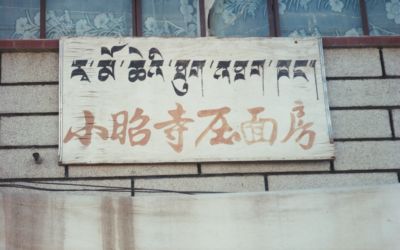 ར་མོ་ཆེའི་ཐུག་འཐག་ཁང་
小昭寺压面房